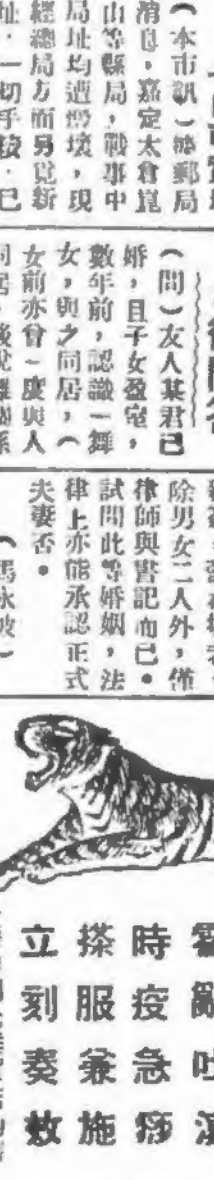 （本市訊）據郵局
消息，嘉定太倉崑
山等縣局，戰事中
局址均遭燬壞，現
經總局方面另覓新
址，一切手續，已
（問）友人某君已
婚，且子女盈室，
數年前，認識一舞
女，與之同居，（
女前亦曾一度與人
除男女二人外，僅
律師與書記而已。
試問此等婚姻，法
律上亦能承認正式
夫妻否。
霍亂吐瀉
時疫急痧
搽服兼施
立刻奏效